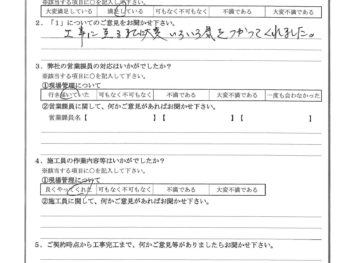 ※該当する項目に○を記入して下さい。
大変満足している 満足している 可もなく不可もなく 不満である 大変不満である
2．「1」についてのご意見をお聞かせ下さい。
工事に至るまで大変いろいろ気をつかってくれました。
3．弊社の営業課員の対応はいかがでしたか？
※該当する項目に○を記入して下さい。
①現場管理について
行き届いていた 可もなく不可もなく 不満である 大変不満である 一度も会わなかった
②営業課員に関して、何かご意見があればお聞かせ下さい。
営業課員名【 】【 】【 】
4．施工員の作業内容等はいかがでしたか？
※該当する項目に○を記入して下さい。
①現場管理について
良くやってくれた 可もなく不可もなく 不満である 大変不満である
②施工員に関して、何かご意見があればお聞かせ下さい。
5．ご契約時点から工事完工まで、何かご意見等がありましたらお聞かせ下さい。